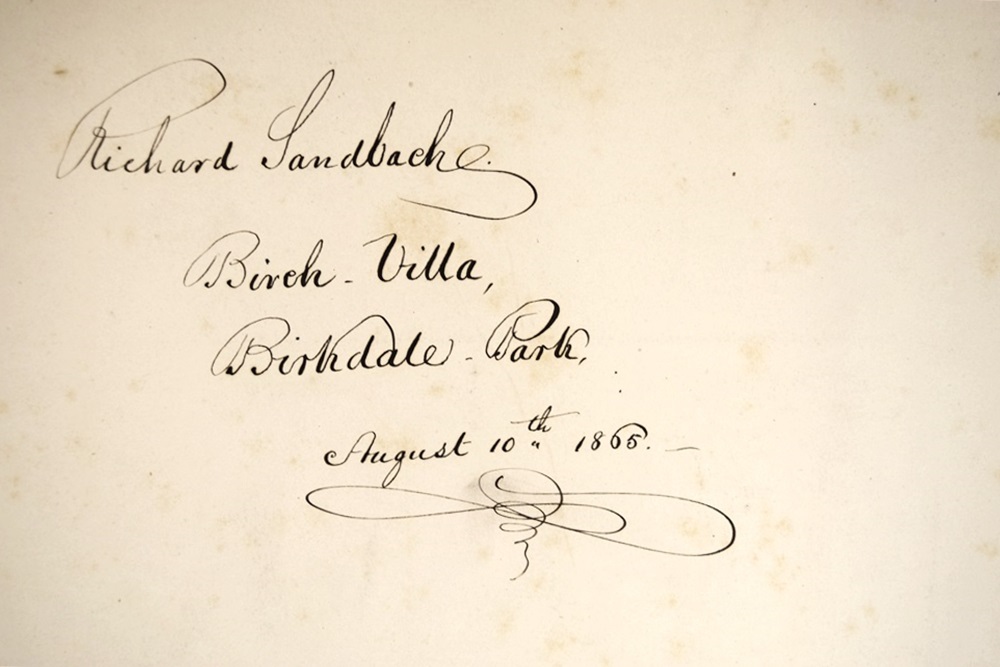 Richard Sandbach.
Birch - Villa,
Birkdale - Park.
August 10th 1865. —